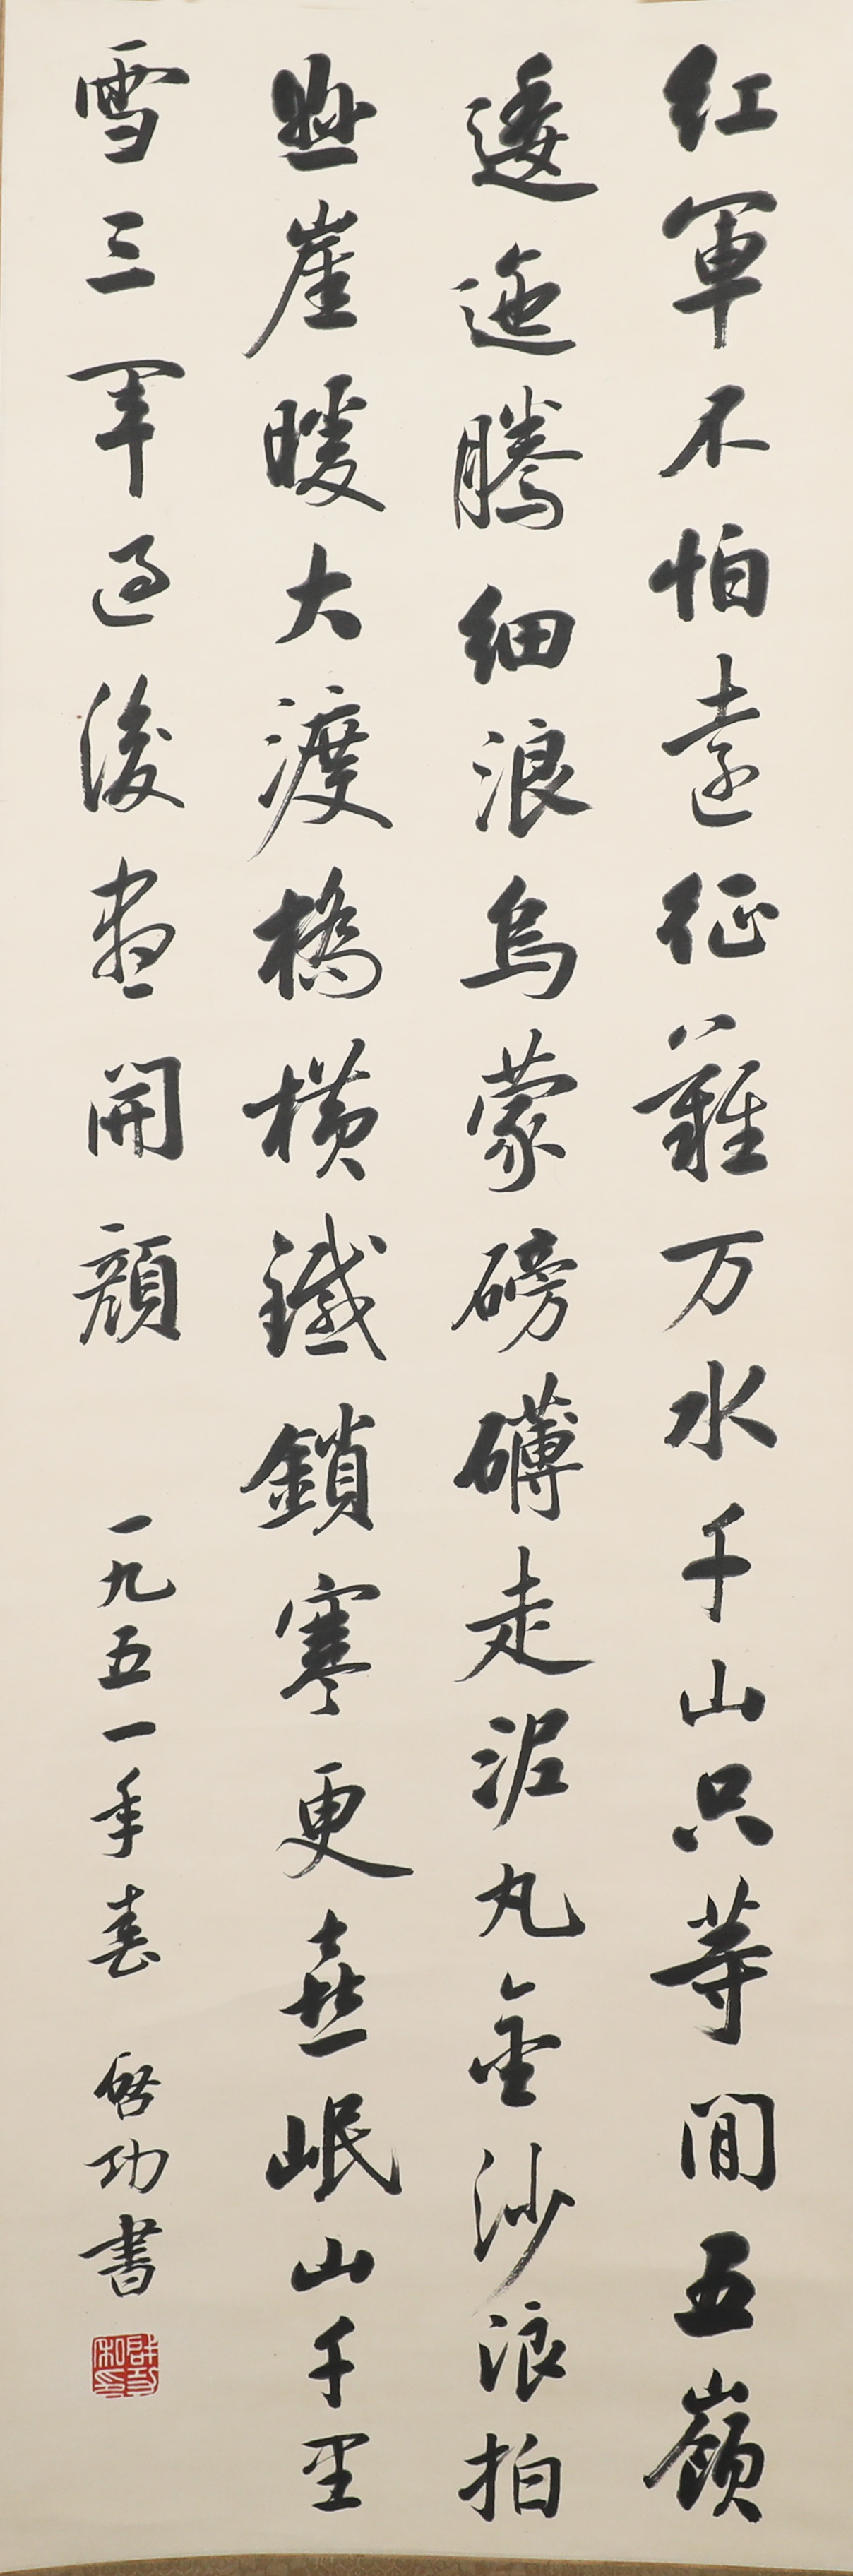 红軍不怕遠征難万水千山只等閒五嶺
逶迤騰細浪烏蒙磅礴走泥丸金沙浪拍
懸崖暖大渡橋橫鐵鎖寒更喜岷山千里
雪三軍過後盡開顏 一九五一年春 啓功書